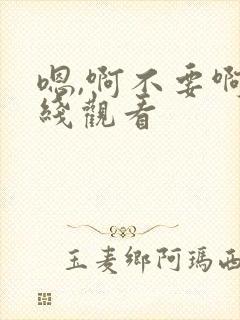 嗯,啊不要啊
綫觀看
玉麦鄉阿瑪西